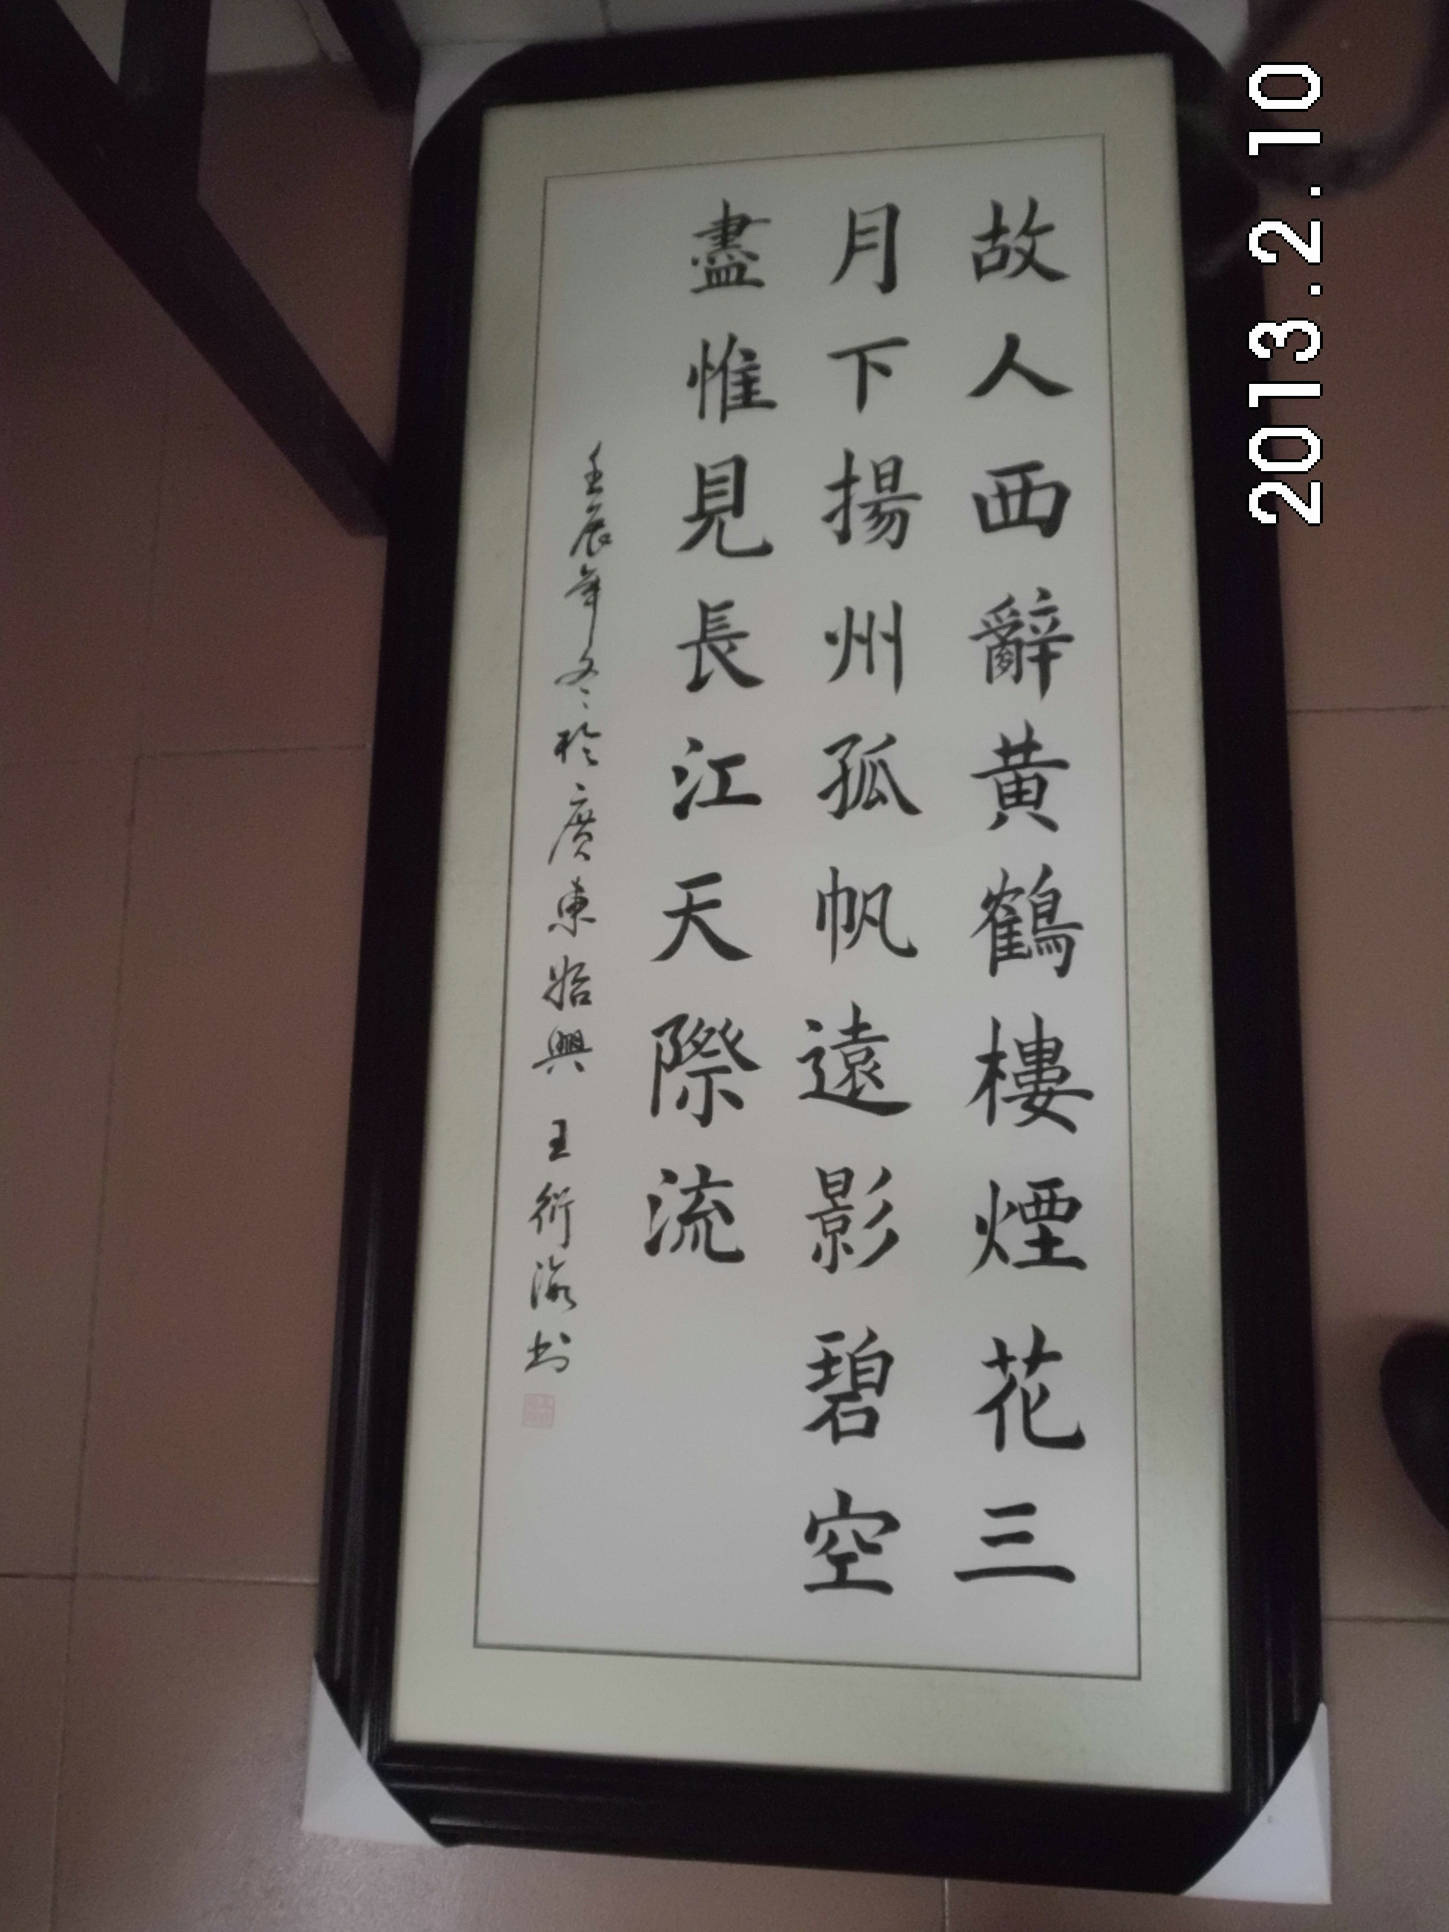 故人西辭黄鶴樓煙花三
月下揚州孤帆遠影碧空
盡惟見長江天際流
壬辰年冬於廣東始興 王衍瀛书
2013.2.10